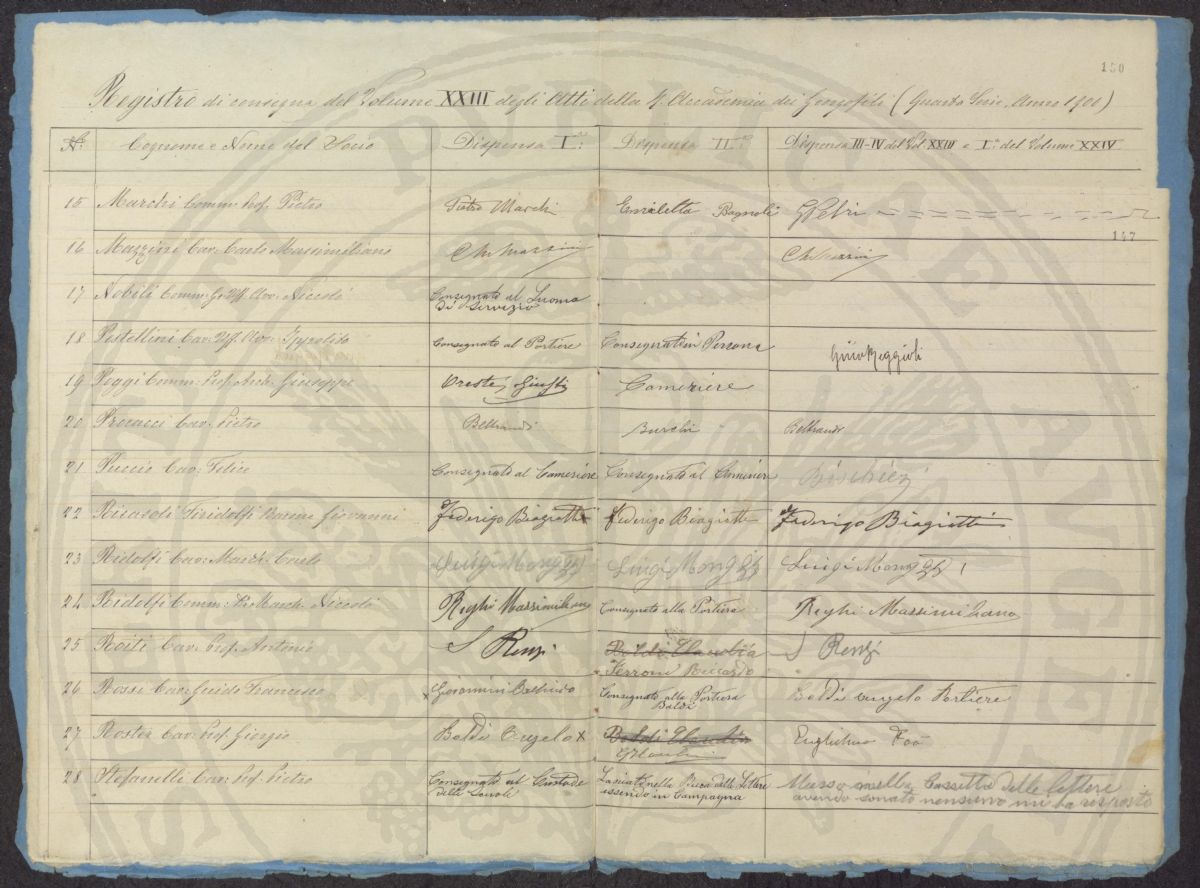 150
Registro di consegna del Volume XXIII degli Atti della R. Accademia dei Georgofili (Quarta Serie, Anno 1900)
N.º Cognome e Nome del Socio Dispensa Iª: Dispensa IIª: Dispensa III-IV del Vol. XXIII e Iª: del Volume XXIV
15 Marchi Comm. Prof. Pietro Pietro Marchi Enrichetta Bagnoli G Petri
147
16 Mazzini Cav. Carlo Massimiliano CM Mazzini CM Mazzini
17 Nobili Comm. Avv. Niccolò Consegnato al Servizio
18 Pestellini Cav. Uff. Avv. Ippolito Consegnato al Portiere Consegnato in Persona Guido Reggioli
19 Poggi Comm. Prof. Arch. Giuseppe Oreste Giusti Cameriere
20 Procacci Cav. Pietro Beltrandi Burchi Beltrandi
21 Puccio Cav. Felice Consegnato al Cameriere Consegnato al Cameriere
22 Ricasoli Firidolfi Barone Giovanni Federigo Biagiotti Federigo Biagiotti Federigo Biagiotti
23 Ridolfi Cav. March. Carlo Luigi Luigi Luigi
24 Ridolfi Comm. March. Niccolò Righi Massimiliano Consegnato alla Portiera Righi Massimiliano
25 Roiti Cav. Prof. Antonio S Renzi Baldi Claudia S Renzi
Ferroni Riccardo
26 Rossi Cav. Guido Francesco Giovannini Consegnato alla Portiera Baldi Baldi Angelo Portiere
27 Roster Cav. Prof. Giorgio Baldi Angelo x Baldi Claudia Foà
28 Stefanelli Cav. Prof. Pietro Consegnato al Custode delle Scuole Lasciato nella Buca delle Lettere essendo in Campagna Messo nella Cassetta delle lettere
avendo sonato nensuno mi ha resposto